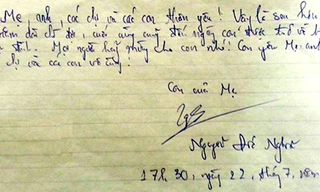 Mẹ, anh, các chị và các con thân yêu! Vậy là sau hơn
năm đã chờ đợi, cuối cùng cũng đã ngày con được trở về
gia đình. Mọi người hãy mừng cho con nhé! Con yêu Mẹ, anh
chị và các con vô cùng!
Con của Mẹ
Nguyễn
17h 30, ngày 22, tháng 7, năm